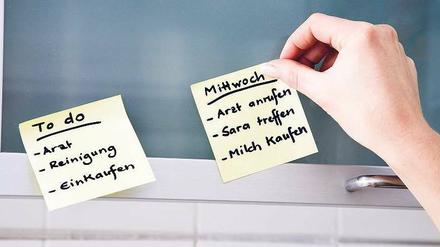 To do
- Arzt
- Reinigung
- Einkaufen
Mittwoch
- Arzt anrufen
- Sara treffen
- Milch Kaufen